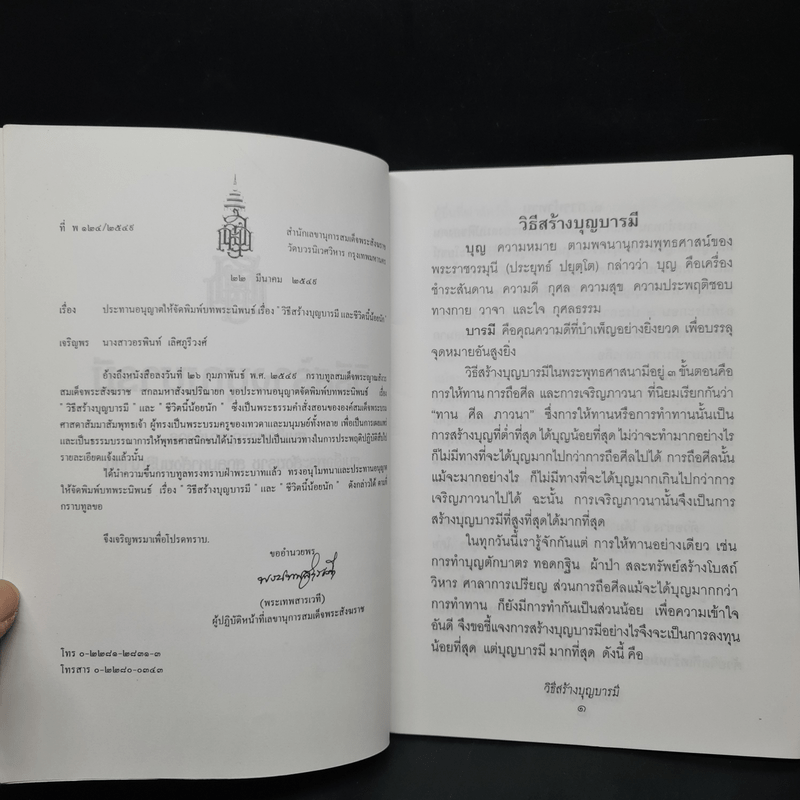 ที่ พ ๑๒๔/๒๕๔๙
สำนักเลขานุการสมเด็จพระสังฆราช
วัดบวรนิเวศวิหาร กรุงเทพมหานคร
๒๒ มีนาคม ๒๕๔๙
เรื่อง ประทานอนุญาตให้จัดพิมพ์บทพระนิพนธ์ เรื่อง " วิธีสร้างบุญบารมี และชีวิตนี้น้อยนัก "
เจริญพร นางสาวอรพินท์ เลิศภูรีวงศ์
อ้างถึงหนังสือลงวันที่ ๒๖ กุมภาพันธ์ พ.ศ. ๒๕๔๙ กราบทูลสมเด็จพระญาณสังวร
สมเด็จพระสังฆราช สกลมหาสังฆปริณายก ขอประทานอนุญาตจัดพิมพ์บทพระนิพนธ์ เรื่อง
" วิธีสร้างบุญบารมี " และ " ชีวิตนี้น้อยนัก " ซึ่งเป็นพระธรรมคำสั่งสอนขององค์สมเด็จพระบรม
ศาสดาสัมมาสัมพุทธเจ้า ผู้ทรงเป็นพระบรมครูของเทวดาและมนุษย์ทั้งหลาย เพื่อเป็นการเผยแพร่
และเป็นธรรมบรรณาการให้พุทธศาสนิกชนได้นำธรรมะไปเป็นแนวทางในการประพฤติปฏิบัติสืบไป
รายละเอียดแจ้งแล้วนั้น
ได้นำความขึ้นกราบทูลทรงทราบฝ่าพระบาทแล้ว ทรงอนุโมทนาและประทานอนุญาต
ให้จัดพิมพ์บทพระนิพนธ์ เรื่อง " วิธีสร้างบุญบารมี " และ " ชีวิตนี้น้อยนัก " ดังกล่าวได้ ตามที่
กราบทูลขอ
จึงเจริญพรมาเพื่อโปรดทราบ.
ขออำนวยพร
(พระเทพสารเวที)
ผู้ปฏิบัติหน้าที่เลขานุการสมเด็จพระสังฆราช
โทร ๐-๒๒๘๑-๒๘๓๑-๓
โทรสาร ๐-๒๒๘๐-๐๓๔๓
วิธีสร้างบุญบารมี
บุญ ความหมาย ตามพจนานุกรมพุทธศาสน์ของ
พระราชวรมุนี (ประยุทธ์ ปยุตฺโต) กล่าวว่า บุญ คือเครื่อง
ชำระสันดาน ความดี กุศล ความสุข ความประพฤติชอบ
ทางกาย วาจา และใจ กุศลธรรม
บารมี คือคุณความดีที่บำเพ็ญอย่างยิ่งยวด เพื่อบรรลุ
จุดหมายอันสูงยิ่ง
วิธีสร้างบุญบารมีในพระพุทธศาสนามีอยู่ ๓ ขั้นตอนคือ
การให้ทาน การถือศีล และการเจริญภาวนา ที่นิยมเรียกกันว่า
"ทาน ศีล ภาวนา" ซึ่งการให้ทานหรือการทำทานนั้นเป็น
การสร้างบุญที่ต่ำที่สุด ได้บุญน้อยที่สุด ไม่ว่าจะทำมากอย่างไร
ก็ไม่มีทางที่จะได้บุญมากไปกว่าการถือศีลไปได้ การถือศีลนั้น
แม้จะมากอย่างไร ก็ไม่มีทางที่จะได้บุญมากเกินไปกว่าการ
เจริญภาวนาไปได้ ฉะนั้น การเจริญภาวนานั้นจึงเป็นการ
สร้างบุญบารมีที่สูงที่สุดได้มากที่สุด
ในทุกวันนี้เรารู้จักกันแต่ การให้ทานอย่างเดียว เช่น
การทำบุญตักบาตร ทอดกฐิน ผ้าป่า สละทรัพย์สร้างโบสถ์
วิหาร ศาลาการเปรียญ ส่วนการถือศีลแม้จะได้บุญมากกว่า
การทำทาน ก็ยังมีการทำกันเป็นส่วนน้อย เพื่อความเข้าใจ
อันดี จึงขอชี้แจงการสร้างบุญบารมีอย่างไรจึงจะเป็นการลงทุน
น้อยที่สุด แต่บุญบารมี มากที่สุด ดังนี้ คือ
วิธีสร้างบุญบารมี
๑